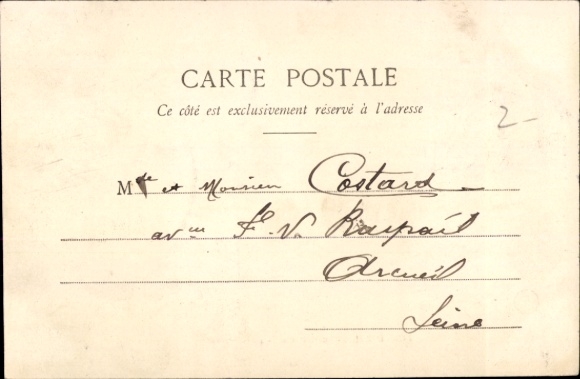 CARTE POSTALE
Ce côté est exclusivement réservé à l'adresse
2
Mde et Monsieur Costard
avue F. V. Raspail
Arcueil
Seine